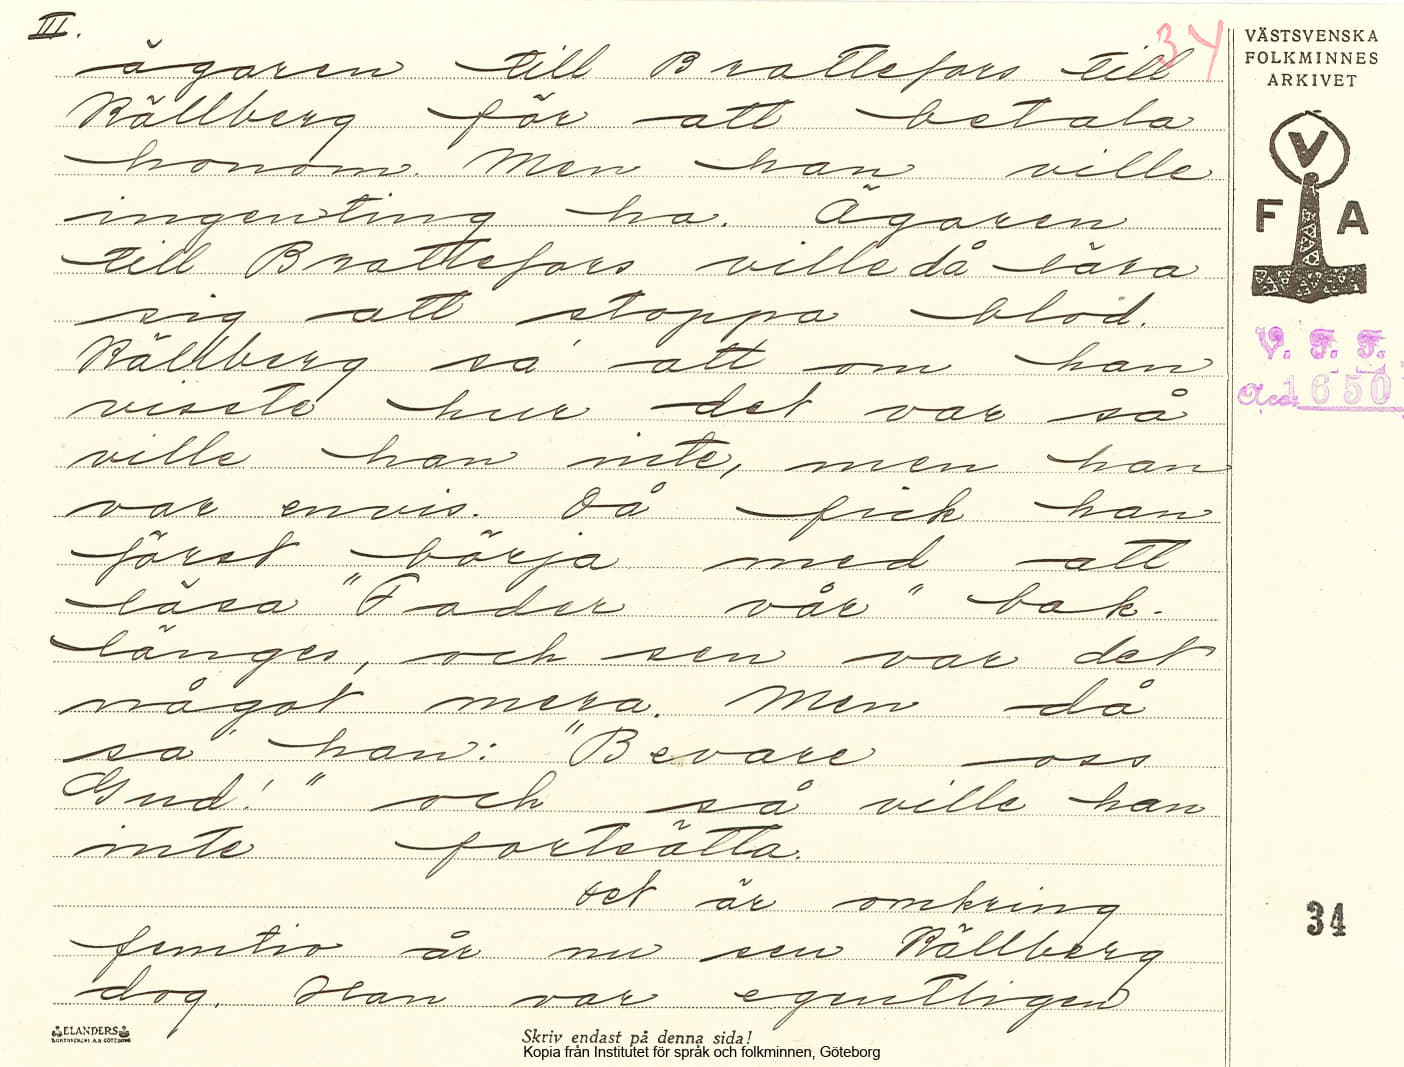 III.
34
ägaren till Brattefors till
Källberg för att betala
honom. Men han ville
ingenting ha. Ägaren
till Brattefors ville då lära
sig att stoppa blod.
Källberg sa' att om han
visste hur det var så
ville han inte, men han
var envis. Då fick han
först börja med att
läsa "Fader vår" bak-
länges, och sen var det
något mera. Men då
sa' han: "Bevare oss
Gud!" och så ville han
inte fortsätta.
Det är omkring
femtio år nu sen Källberg
dog. Han var egentligen
VÄSTSVENSKA
FOLKMINNES
ARKIVET
V
F A
V. F. F.
Acc. 1650
34
ELANDERS
BOKTRYCKERI A.B. GÖTEBORG
Skriv endast på denna sida!
Kopia från Institutet för språk och folkminnen, Göteborg